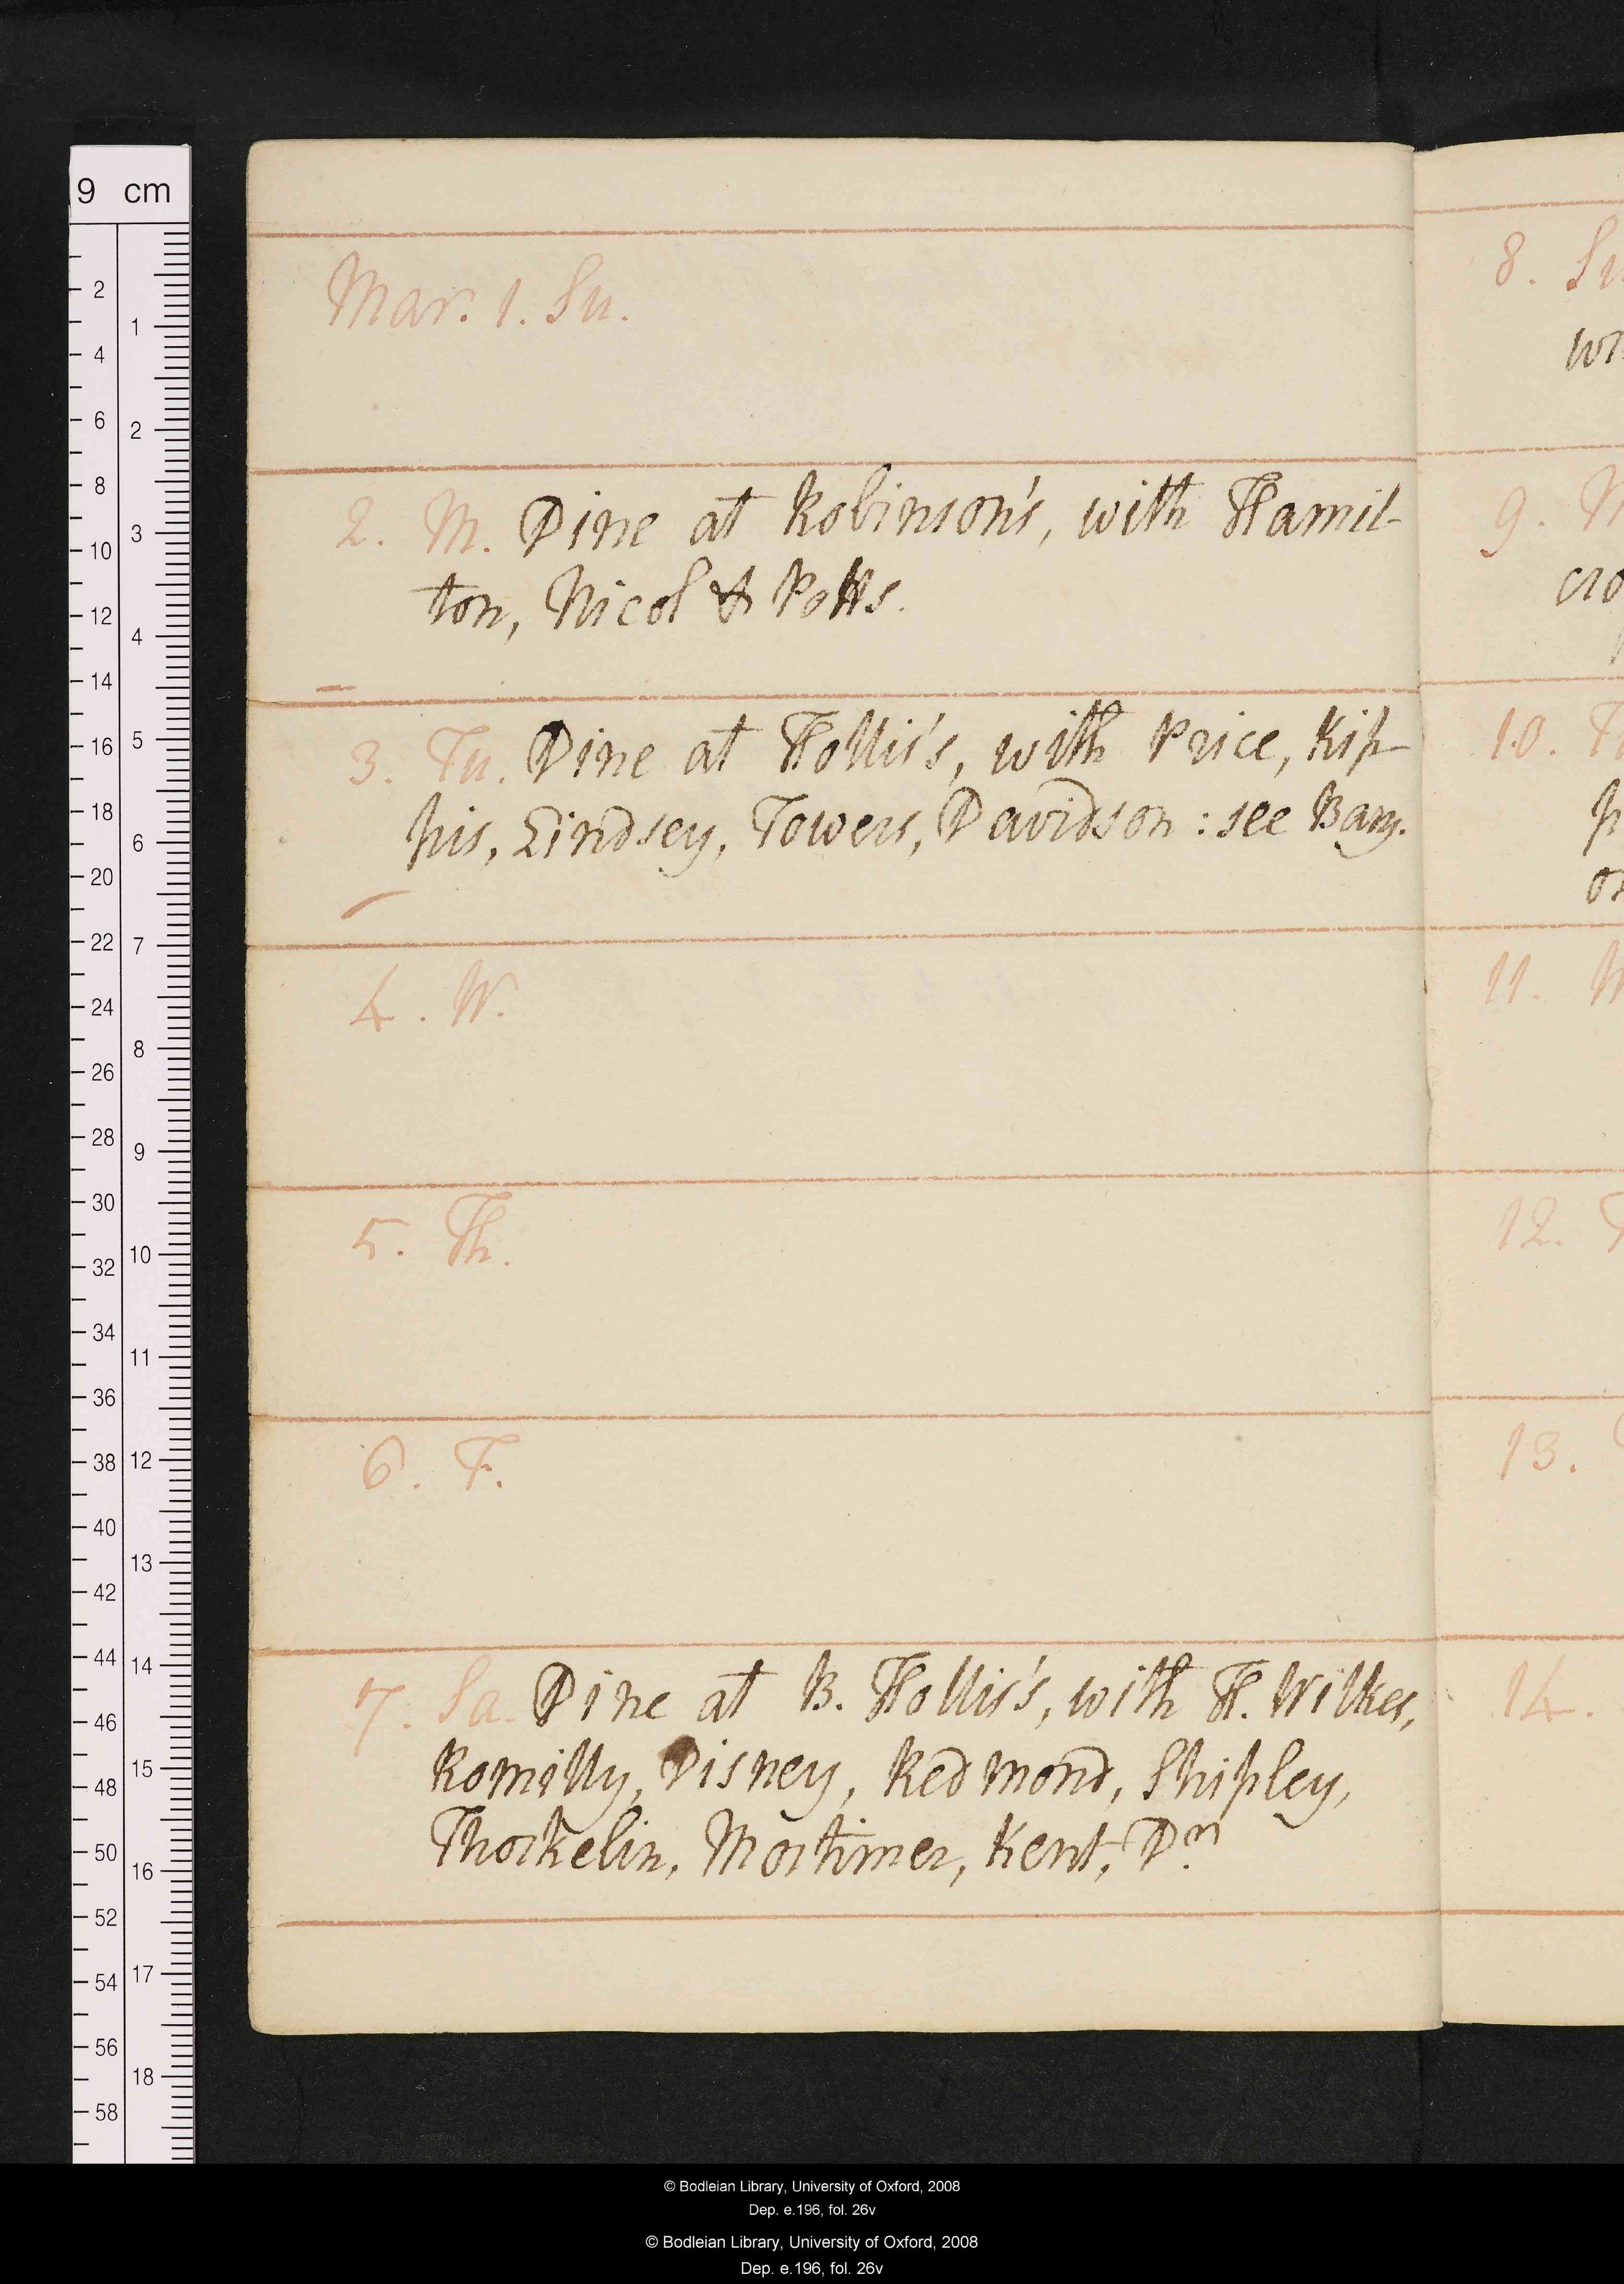 Mar. 1. Su.
2. M. Dine at Robinson's, with Hamil-
ton, Nicol & Potts.
3. Tu. Dine at Hollis's, with Price, Kip-
pis, Lindsey, Towers, Davidson: see Bary.
4. W.
5. Th.
6. F.
7. Sa. Dine at B. Hollis's, with H. Wilkes,
Romilly, Disney, Redmond, Shipley,
Thorkelin, Mortimer, Kent, Dn
8. Su
9. M
10. T
11. W
12. T
13.
14.
9 cm
2
4
6
8
10
12
14
16
18
20
22
24
26
28
30
32
34
36
38
40
42
44
46
48
50
52
54
56
58
1
2
3
4
5
6
7
8
9
10
11
12
13
14
15
16
17
18
© Bodleian Library, University of Oxford, 2008
Dep. e.196, fol. 26v
© Bodleian Library, University of Oxford, 2008
Dep. e.196, fol. 26v